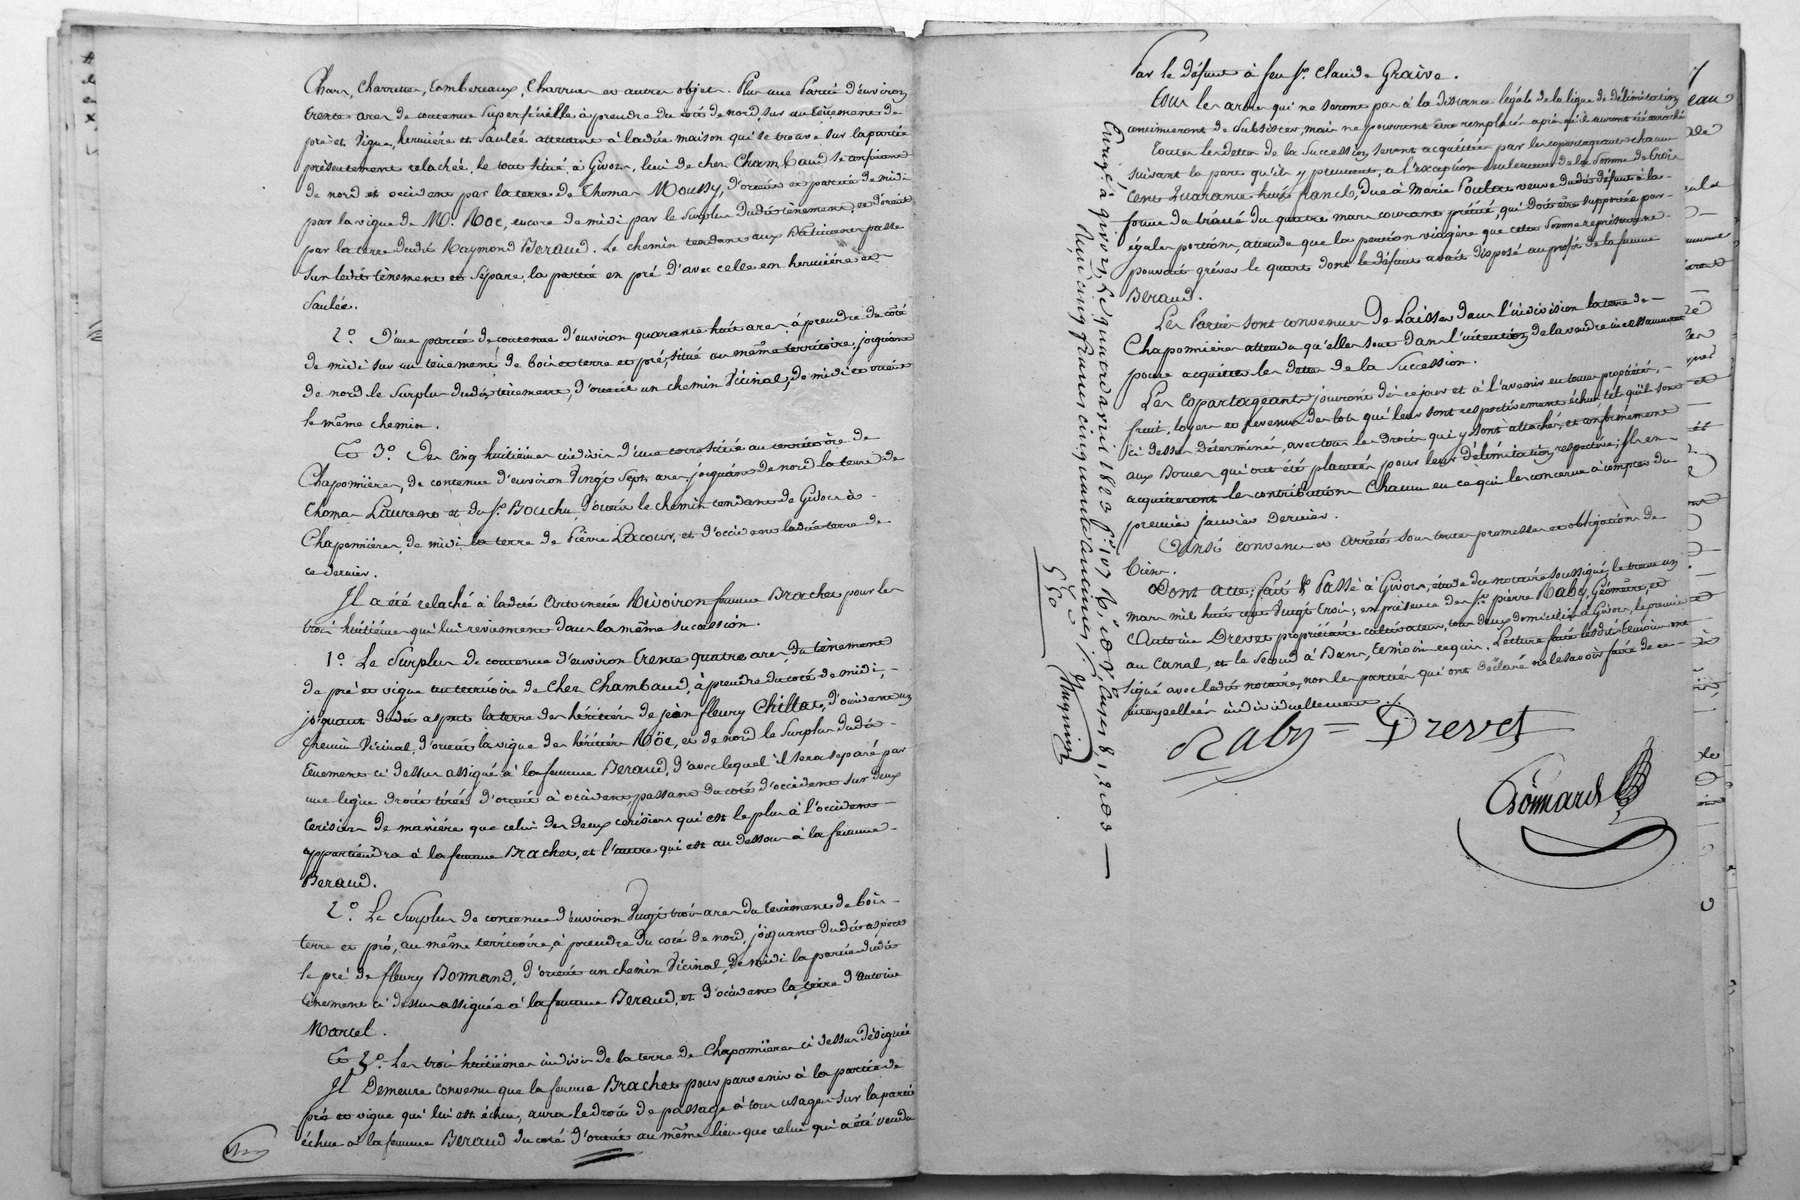 Chars, Charrettes, tombereaux, Charrues et autres objets. Plus une Partie d'environ
trente ares de contenue Superficielle à prendre du coté de nord, sur un tènement de
pré et Vigne, hermière et Saulée attenant à ladite maison qui se trouve sur la partie
présentement relachée. le tout situé à Givors, lieu de cher Chambaud se confinant
de nord et occident par la terre de Thomas Moussy, d'orient et partie de midi
par la vigne de M. Roc, encore de midi par le Surplus dudit tènement, et d'orient
par la terre dudit Raymond Beraud. Le chemin tendant aux Batimens passe
sur ledit tènement et Sépare la partie en pré d'avec celle en hermière et
Saulée.
2.° D'une partie de contenue d'environ quarante huit ares, à prendre du coté
de midi sur un tènement de bois terre et pré, situé au même territoire, joignant
de nord le Surplus dudit tènement, d'orient un chemin Vicinal, de midi et orient
le même chemin.
Et 3.° Des Cinq huitièmes indivis d'une terre située au territoire de
Chaponnières, de contenue d'environ Vingt Sept ares, joignant de nord la terre de
Thomas Laurent et du S.r Bouchu d'orient le chemin tendant de Givors à
Chaponnières, de midi la terre de Pierre Lacour, et d'occident ladite terre de
ce dernier.
Il a été relaché à ladite Antoinette Rivoiron femme Brachet pour les
trois huitièmes qui lui reviennent dans la même succession.
1.° Le Surplus de contenue d'environ trente quatre ares, du tènement
de pré et vigne au territoire de Cher Chambaud, à prendre du coté de midi,
joignant dudit aspect la terre des héritiers de jean fleury Chillat, d'occident un
chemin Vicinal, d'orient la vigne des héritiers Röc, et de nord le Surplus dudit
tènement ci dessus assigné à la femme Beraud, d'avec lequel il sera séparé par
une ligne droite tirée d'orient à occident passant du coté d'occident sur deux
cerisiers de manière que celui des deux cerisiers qui est le plus à l'occident
appartiendra à la femme Brachet, et l'autre qui est au dessous à la femme
Beraud.
2.° Le Surplus de contenue d'environ Vingt trois ares du tènement de bois
terre et pré, au même territoire, à prendre du coté de nord, joignant dudit aspect
le pré de fleury Bonnand, d'orient un chemin Vicinal, de midi la partie dudit
tènement ci dessus assignée à la femme Beraud, et d'occident la terre d'antoine
Martel.
Et 3.° Les trois huitièmes indivis de la terre de Chaponnières ci dessus désignée
Il Demeure convenu que la femme Brachet pour parvenir à la partie de
pré et vigne qui lui est échue, aura le droit de passage à tous usages sur la partie
échue à la femme Beraud du coté d'orient au même lieu que celui qui a été vendu
Par le défunt à feu S.r Claude Graive.
Tous les arbres qui ne seront pas à la distance légale de la ligne de délimitation
continueront de Subsister, mais ne pourront être remplacés après qu'ils auront été arrachés
Toutes les dettes de la Succession seront acquittées par les copartageants chacun
suivant la part qu'ils y prennent, à l'exception seulement de la Somme de trois
Cent Quarante huit francs, due à Marie Poulat veuve dudit défunt à la
forme du traité du quatre mars courant précité, qui doit être supportée par
égales portions, attendu que la pension viagère que cette Somme représente ne
pouvait gréver le quart dont le défunt avait disposé au profit de la femme
Beraud.
Les Parties sont convenues De Laisser dans l'indivision la terre de
Chaponnières attendu qu'elles sont dans l'intention de la vendre incessamment
pour acquitter les dettes de la Succession.
Les Copartageants jouiront dès ce jour et à l'avenir en toute propriété,
fruit, loyers et revenus des lots qui leur sont respectivement échus tels qu'ils sont
ci dessus déterminés, avec tous les droits qui y sont attachés, et conformément
aux Bornes qui ont été plantées pour leur délimitation respective; Ils en
acquitteront les contributions Chacun en ce qui le concerne à compter du
premier janvier dernier.
Ainsi convenu et arrêté sous toutes promesses et obligations de
biens.
Dont acte; fait & Passé à Givors, étude du notaire soussigné, le trente un
mars mil huit cent Vingt trois; en présence des S.rs pierre Raby, Géomètre, et
Antoine Drevet propriétaire cultivateur, tous deux domiciliés à Givors, le premier
au Canal, et le Second à Bans, témoins requis. Lecture faite lesdits témoins ont
signé avec ledit notaire, non les parties qui ont déclaré ne le savoir faire de ce
interpellées individuellement.
Raby = Drevet
Bonnard
Enrg.é à givors, le quatre avril 1823 f.° 107 R.°, et V.°, Cases 8, 1, 2 et 3
Reçu cinq francs cinquante centimes
5,50